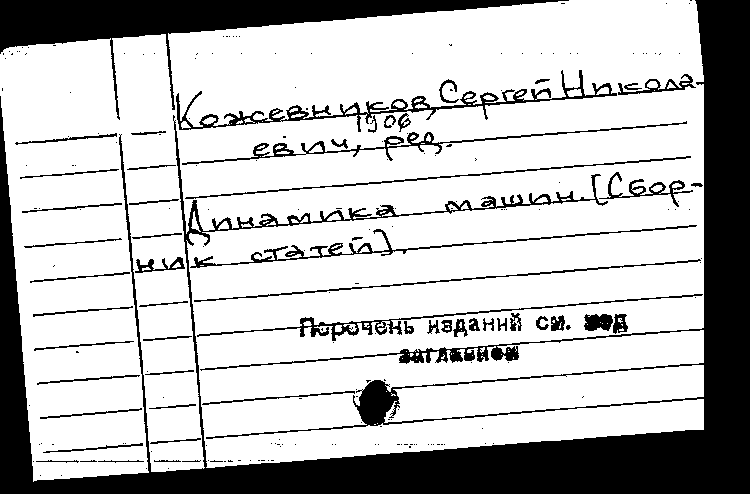 Кожевников, Сергей Никола-
1906
евич, ред.
Динамика машин. [Сбор-
ник статей].
Перечень изданий см. под
заглавием